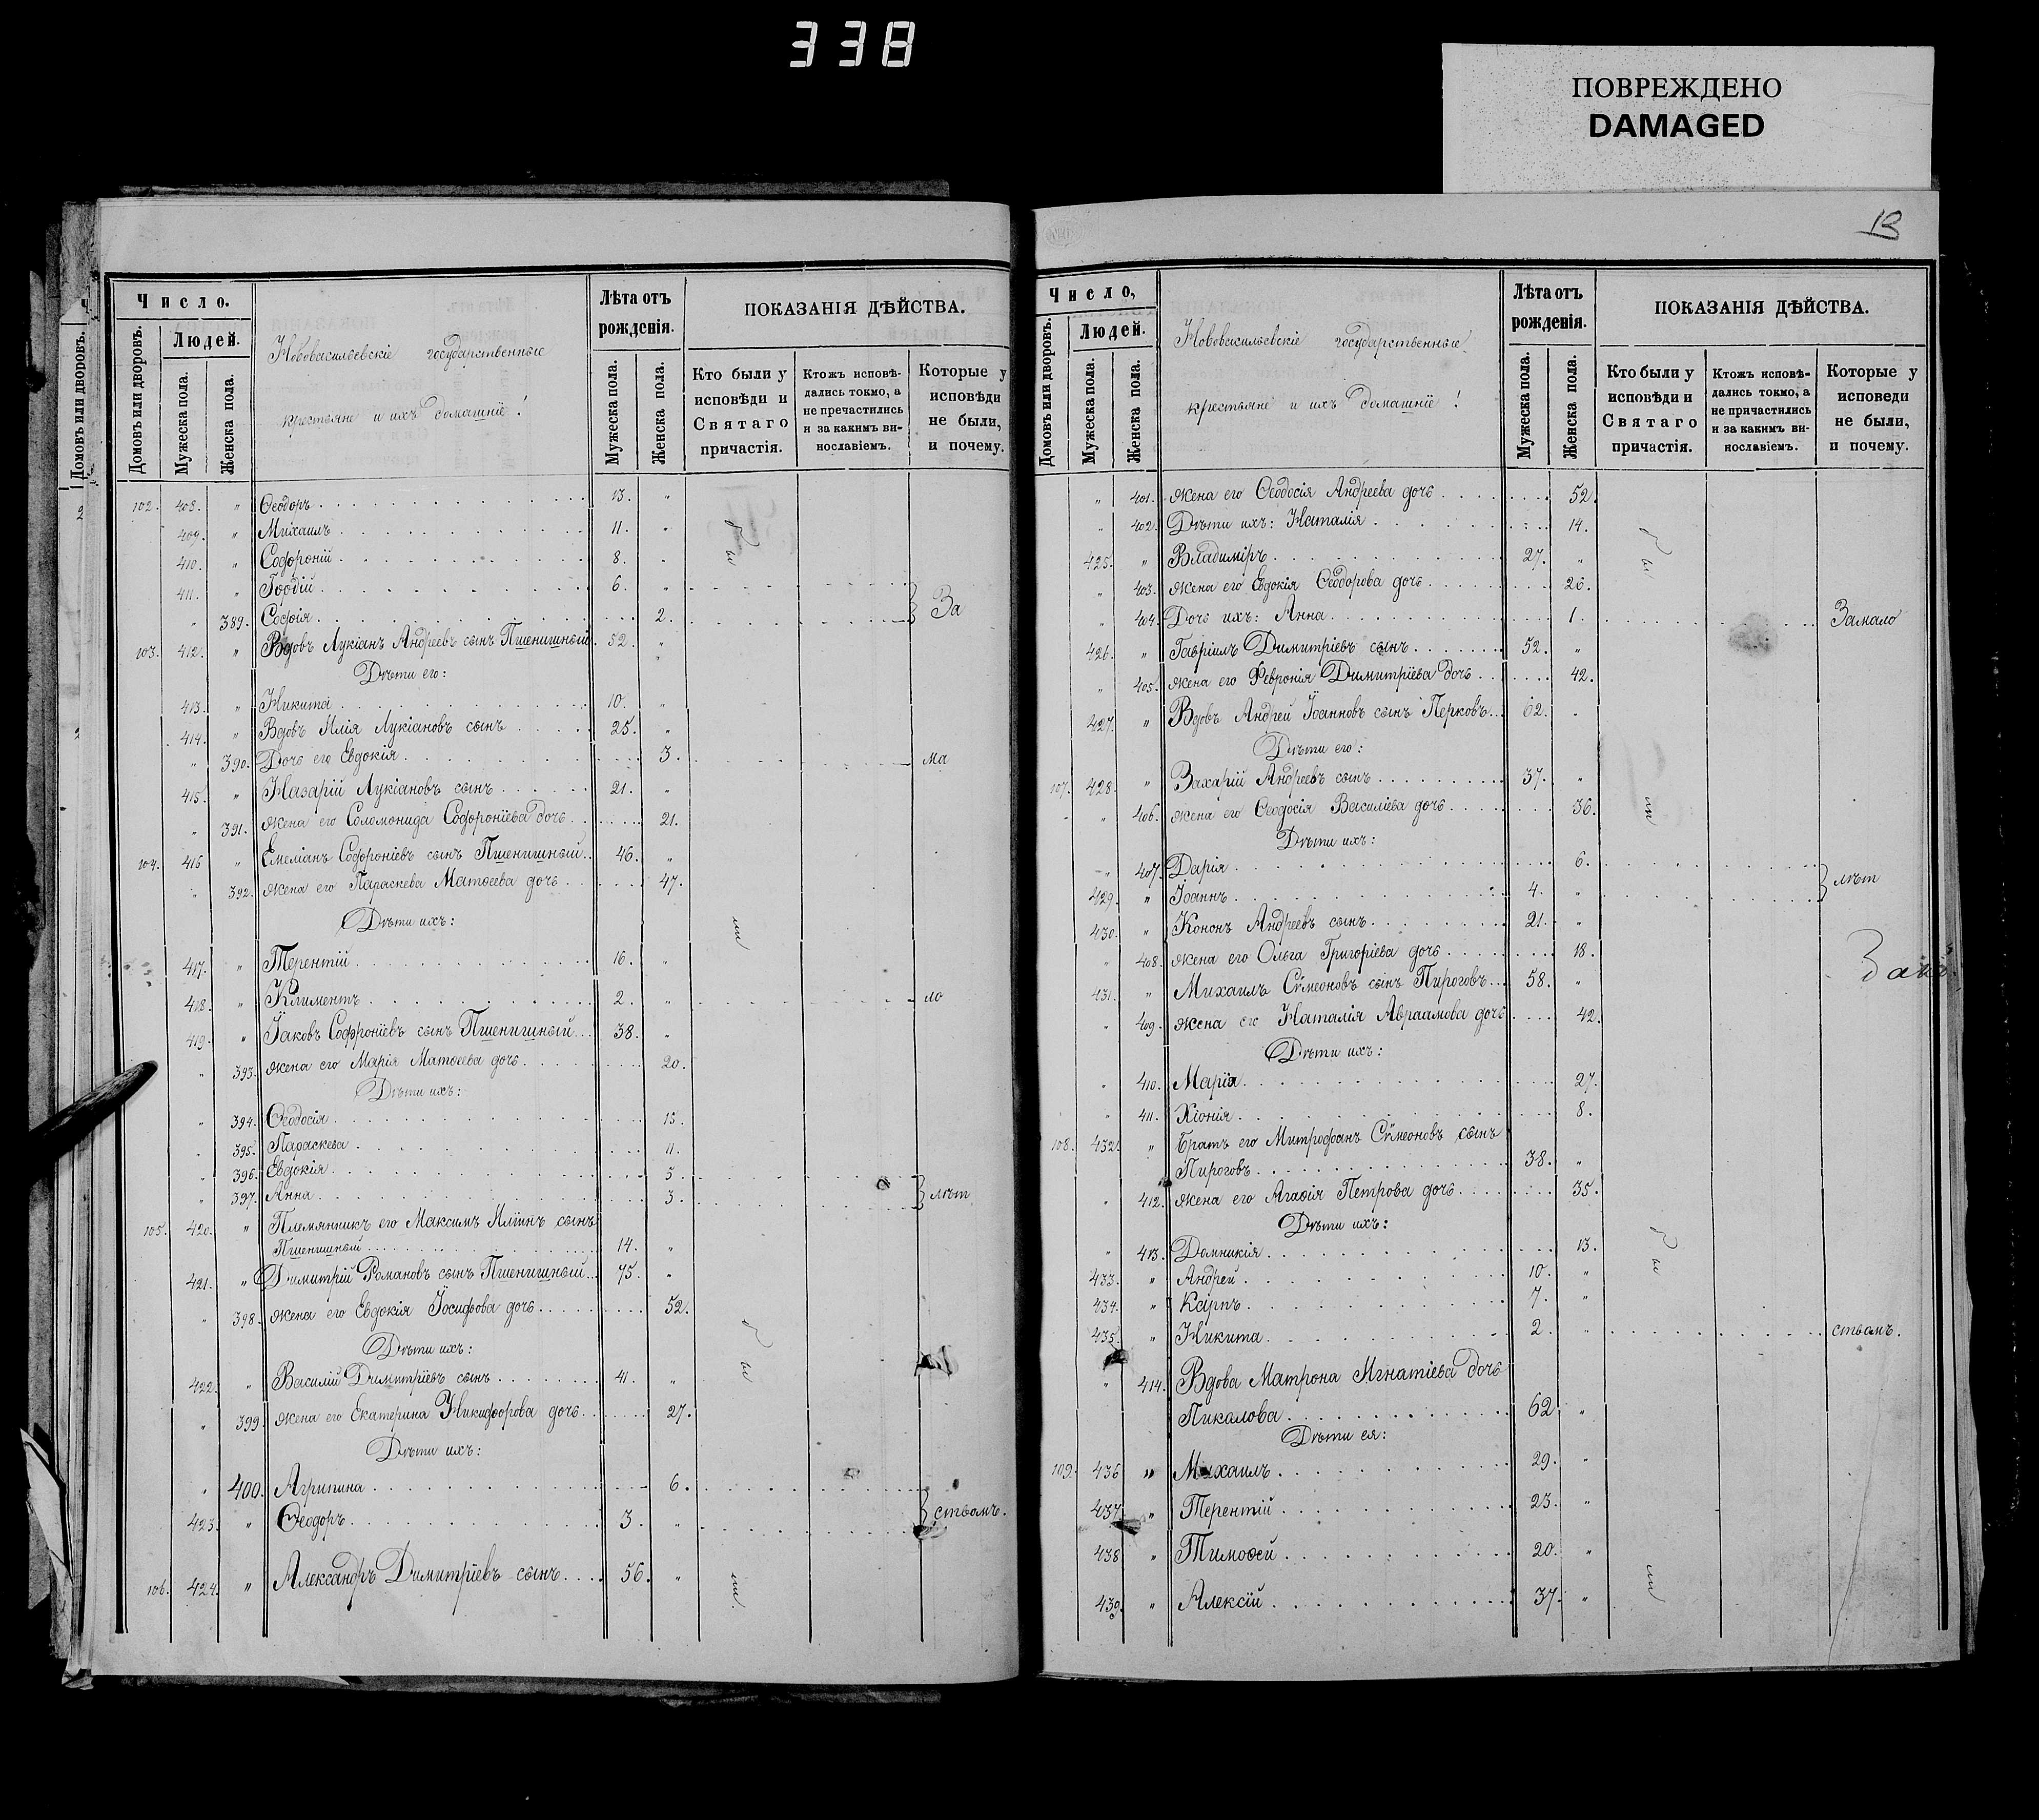 338
ПОВРЕЖДЕНО
DAMAGED
Число.
Домовъ или дворовъ.
Людей.
Мужеска пола.
Женска пола.
Нововасильевскіе государственные
крестьяне и ихъ домашніе!
Лѣта отъ
рожденія.
Мужеска пола.
Женска пола.
ПОКАЗАНІЯ ДѢЙСТВА.
Кто были у
исповѣди и
Святаго
причастія.
Ктожъ исповѣ-
дались токмо, а
не пречастились
и за какимъ ви-
нославіемъ.
Которые у
исповѣди
не были,
и почему.
102. 408. " Ѳеодоръ 13. "
409. " Михаилъ 11. "
410. " Софроній 8.
411. " Гордій 6. "
" 389. Софія 2. За
103. 412. " Вдовъ Лукіанъ Андреевъ сынъ Пшенишный. 52. "
Дѣти его:
413. " Никита 10. "
414. " Вдовъ Илія Лукіановъ сынъ 25. "
" 390. Дочь его Евдокія 3. ма
415. " Назарій Лукіановъ сынъ 21. "
" 391. жена его Соломонида Софроніева дочь 21.
104. 416 " Емеліанъ Софроніевъ сынъ Пшенишный 46. "
" 392. жена его Параскева Матѳеева дочь 47.
Дѣти ихъ:
417. " Терентій 16. "
418. " Климентъ 2. " ло
419. " Іаковъ Софроніевъ сынъ Пшенишный 38. "
" 393. жена его Марія Матѳеева дочь 20.
Дѣти ихъ:
" 394. Ѳеодосія 15.
" 395. Параскева 11.
" 396. Евдокія 5.
" 397. Анна 3. лѣт
105. 420. " Племянникъ его Максимъ Ильинъ сынъ
Пшенишный 14. "
421. " Димитрій Романовъ сынъ Пшенишный 75. "
" 398. жена его Евдокія Іосифова дочь 52.
Дѣти ихъ:
422. " Василій Димитріевъ сынъ 41. "
" 399. жена его Екатерина Никифорова дочь 27.
Дѣти ихъ:
" 400. Агрипина 6.
423. " Ѳеодоръ 3. " ствомъ.
106. 424. " Александръ Димитріевъ сынъ 56. "
13
Число,
Домовъ или дворовъ.
Людей.
Мужеска пола.
Женска пола.
Нововасильевскіе государственные
крестьяне и ихъ домашніе!
Лѣта отъ
рожденія.
Мужеска пола.
Женска пола.
ПОКАЗАНІЯ ДѢЙСТВА.
Кто были у
исповѣди и
Святаго
причастія.
Ктожъ исповѣ-
дались токмо, а
не причастились
и за какимъ ви-
нославіемъ.
Которые у
исповеди
не были,
и почему.
" 401. жена его Ѳеодосія Андреева дочь 52.
" 402. Дѣти ихъ: Наталія 14.
425. " Владиміръ 27. "
" 403. жена его Евдокія Ѳеодорова дочь 26.
" 404. Дочь ихъ: Анна 1. Замало
426. " Гавріилъ Димитріевъ сынъ 52. "
" 405. жена его Февронія Димитріева дочь 42.
427. " Вдовъ Андрей Іоанновъ сынъ Перковъ 62.
Дѣти его:
107. 428. " Захарій Андреевъ сынъ 37. "
" 406. жена его Ѳеодосія Василіева дочь 36.
Дѣти ихъ:
" 407. Дарія 6.
429. " Іоаннъ 4. " лѣт
430. " Кононъ Андреевъ сынъ 21. "
" 408. жена его Ольга Григоріева дочь 18.
431. " Михаилъ Симеоновъ сынъ Пироговъ 58. "
" 409. жена его Наталія Авраамова дочь 42.
Дѣти ихъ:
" 410. Марія 27.
" 411. Хіонія 8.
108. 432. " Братъ его Митрофанъ Симеоновъ сынъ
Пироговъ 38. "
" 412. жена его Агаѳія Петрова дочь 35.
Дѣти ихъ:
" 413. Домникія 13.
433. " Андрей 10. "
434. " Карпъ 7. "
435. " Никита 2. " ствомъ.
" 414. Вдова Матрона Игнатіева дочь
Пикалова 62 "
Дѣти ея:
109. 436 " Михаилъ 29. "
437. " Терентій 23. "
438 " Тимоѳей 20. "
439. " Алексій 37. "